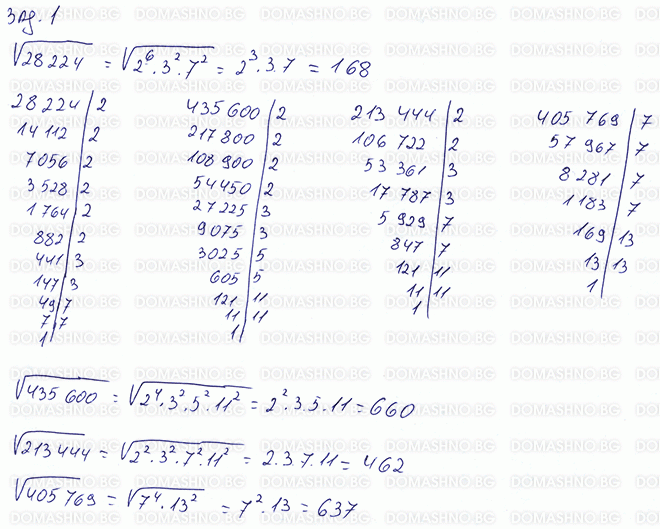 Зад. 1
√28224 = √2⁶.3².7² = 2³.3.7 = 168
28224 | 2
14112 | 2
7056 | 2
3528 | 2
1764 | 2
882 | 2
441 | 3
147 | 3
49 | 7
7 | 7
1
435600 | 2
217800 | 2
108900 | 2
54450 | 2
27225 | 3
9075 | 3
3025 | 5
605 | 5
121 | 11
11 | 11
1
213444 | 2
106722 | 2
53361 | 3
17787 | 3
5929 | 7
847 | 7
121 | 11
11 | 11
1
405769 | 7
57967 | 7
8281 | 7
1183 | 7
169 | 13
13 | 13
1
√435600 = √2⁴.3².5².11² = 2².3.5.11 = 660
√213444 = √2².3².7².11² = 2.3.7.11 = 462
√405769 = √7⁴.13² = 7².13 = 637
DOMASHNO.BG